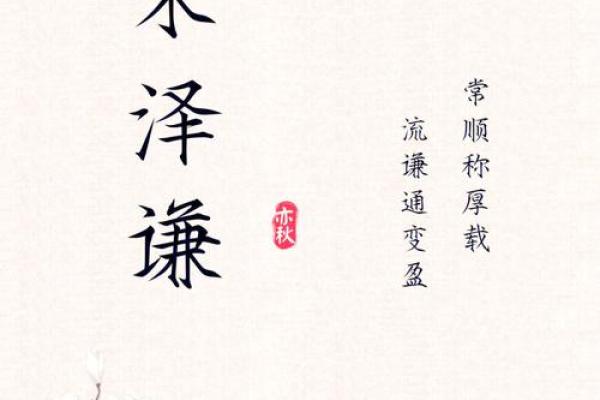 常顺称厚载
流谦通变盈
亦秋
泽谦